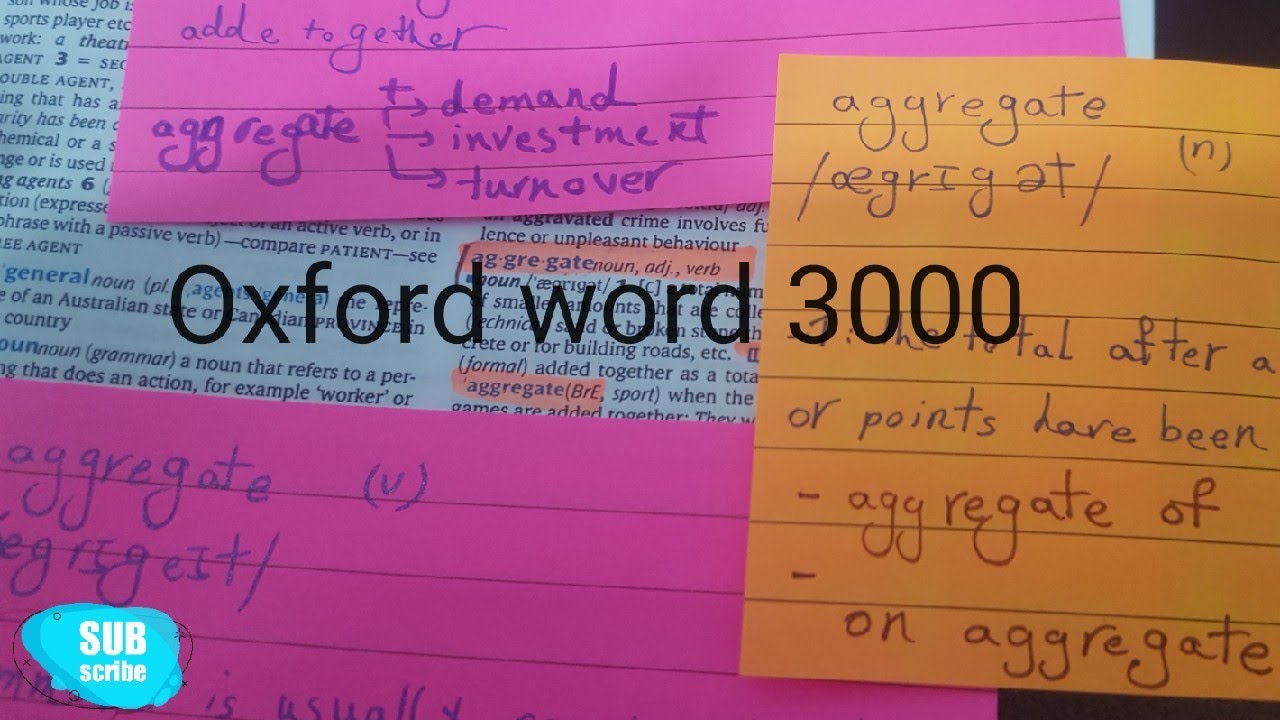 adde together
aggregate → demand
→ investment
→ turnover
son whose job is
sports player etc
work: a theatri
AGENT 3 = SEC
OUBLE AGENT,
ing that has a
arity has been c
hemical or a s
nge or is used
g agents 6
tion (expresse
phrase with a passive verb)—compare PATIENT—see
an active verb, or in
EE AGENT
general noun (pl.
e of an Australian state or Canadian PROVINCE in
country
oun noun (grammar) a noun that refers to a per-
ng that does an action, for example ‘worker’ or
adj.
an aggravated crime involves fu
lence or unpleasant behaviour
ag·gre·gate noun, adj., verb
noun /ˈæɡrɪɡət/ 1 [C]
of smaller amounts that are colle
(technical) sand or broken stone th
crete or for building roads, etc.
(formal) added together as a tota
ˈaggregate (BrE, sport) when the
games are added together: They w
Oxford word 3000
aggregate
(n)
/ægrIgət/
-1: the total after a
or points have been
- aggregate of
-
on aggregate
aggregate (v)
ægrIgeIt/
is usually
SUB
scribe